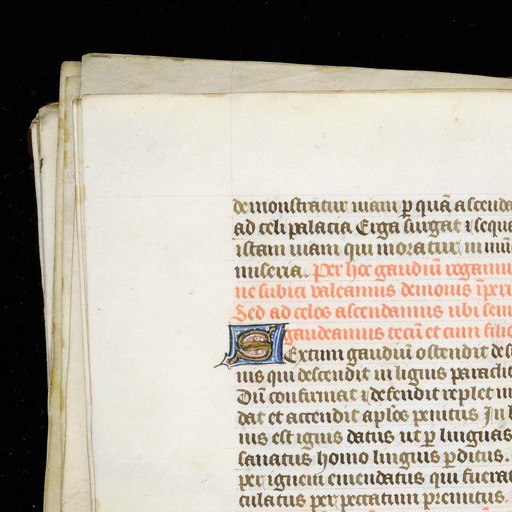 demonstratur uiam ꝑ quā ascenda
ad celi palacia Erga surgat ⁊ sequa
istam uiam qui moratur in mū
miseria. Per hoc gaudiū rogamu
ne subici ualeamus demonis īperi
Sed ad celos ascendamus ubi sem
gaudeamus tecū et cum filio
Sextum gaudiū ostendit des
nus qui descendit in lignis paraclit
Dū confirmat ⁊ defendit replet in
dat et accendit aplōs penitus In
nis est ignis datus ut ꝑ linguas
sanatus homo linguis ꝑditus.
per ignem emendatus qui fuerat
culatus per peccatum premitus.